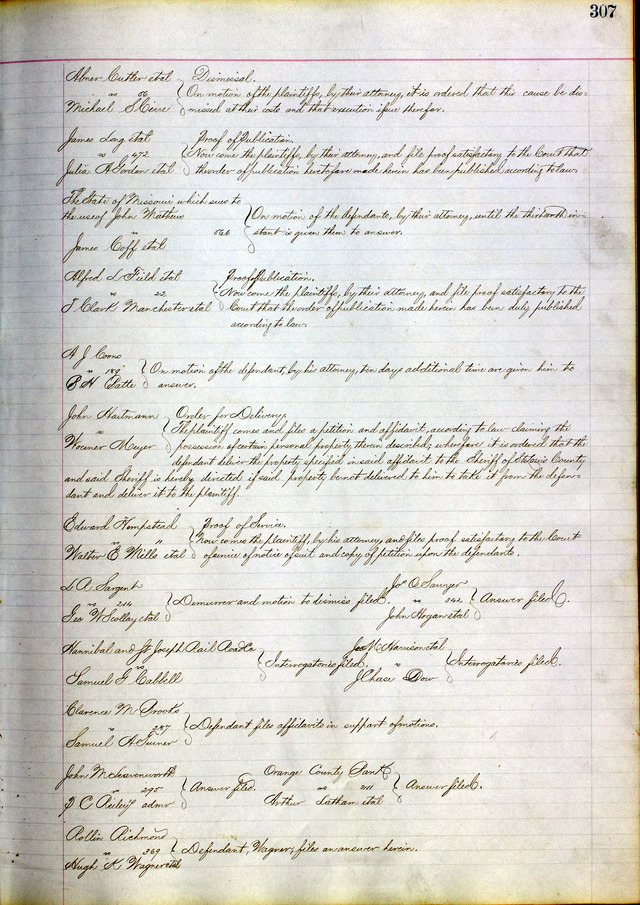 307
Abner Cutler etal } Dismissal.
vs 56 } On motion of the plaintiffs, by their attorney, it is ordered that this cause be dis-
Michael S. } missed at their costs and that execution issue therefor.
James Long etal } Proof of Publication.
vs 472 } Now come the plaintiffs, by their attorney, and file proof satisfactory to the Court that
Julia A Gordon etal } the order of publication heretofore made herein has been published according to law.
The State of Missouri which sues to
the use of John Mathews } On motion of the defendants, by their attorney, until the thirteenth in-
vs 566 } stant is given them to answer.
James Goff etal
Alfred L Field etal } Proof of Publication.
vs 22 } Now come the plaintiffs, by their attorney, and file proof satisfactory to the
T Clark Manchester etal } Court that the order of publication made herein has been duly published
according to law.
A J Coons
vs 189 } On motion of the defendant, by his attorney, ten days additional time are given him to
B H } answer.
John Hartmann } Order for Delivery.
vs } The plaintiff comes and files a petition and affidavit, according to law claiming the
Meyer } possession of certain personal property therein described; wherefore it is ordered that the
defendant deliver the property specified in said affidavit to the Sheriff of St Louis County
and said Sheriff is hereby directed if said property be not delivered to him to take it from the defen-
dant and deliver it to the plaintiff.
Edward Hempstead } Proof of Service.
vs } Now comes the plaintiff, by his attorney, and files proof satisfactory to the Court
Walter E Mills etal } of service of notice of suit and copy of petition upon the defendants.
L A Sargent
vs 214 } Demurrer and motion to dismiss filed.
Geo W Scollay etal
Jno O Sawyer
vs 242 } Answer filed.
John Hogan etal
Hannibal and St Joseph Rail Road Co
vs } Interrogatories filed.
Samuel G Cabbell
Jas W Harrison etal
vs } Interrogatories filed.
J Chase Dow
Clarence M Brooks
vs 287 } Defendant files affidavits in support of motions.
Samuel A
John M Leavenworth
vs 295 } Answer filed.
admr
Orange County Bank
vs 211 } Answer filed.
Arthur Latham etal
Rollin Richmond
vs 369 } Defendant, Wagner, files an answer herein.
Hugh K Wagner etal